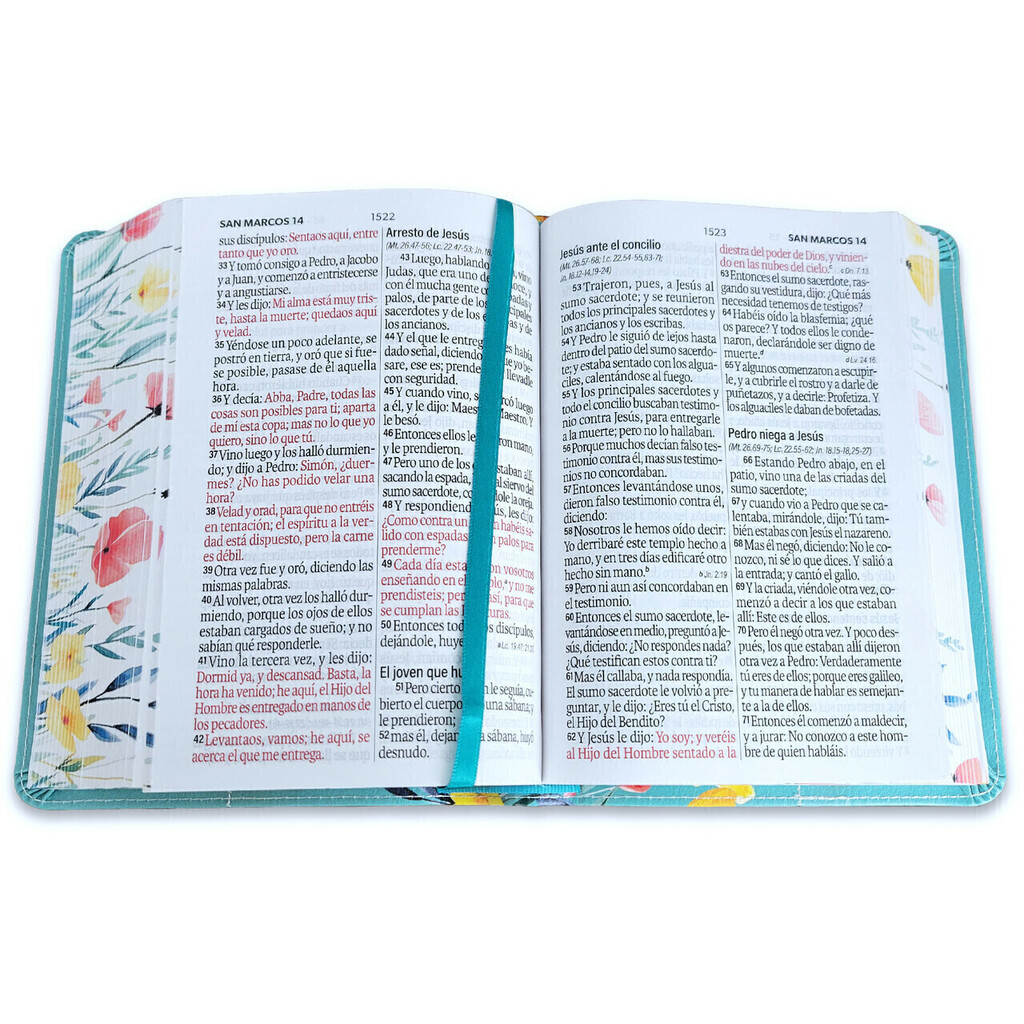 SAN MARCOS 14
1522
sus discípulos: Sentaos aquí, entre
tanto que yo oro.
33 Y tomó consigo a Pedro, a Jacobo
y a Juan, y comenzó a entristecerse
y a angustiarse.
34 Y les dijo: Mi alma está muy tris-
te, hasta la muerte; quedaos aquí
y velad.
35 Yéndose un poco adelante, se
postró en tierra, y oró que si fue-
se posible, pasase de él aquella
hora.
36 Y decía: Abba, Padre, todas las
cosas son posibles para ti; aparta
de mí esta copa; mas no lo que yo
quiero, sino lo que tú.
37 Vino luego y los halló durmien-
do; y dijo a Pedro: Simón, ¿duer-
mes? ¿No has podido velar una
hora?
38 Velad y orad, para que no entréis
en tentación; el espíritu a la ver-
dad está dispuesto, pero la carne
es débil.
39 Otra vez fue y oró, diciendo las
mismas palabras.
40 Al volver, otra vez los halló dur-
miendo, porque los ojos de ellos
estaban cargados de sueño; y no
sabían qué responderle.
41 Vino la tercera vez, y les dijo:
Dormid ya, y descansad. Basta, la
hora ha venido; he aquí, el Hijo del
Hombre es entregado en manos de
los pecadores.
42 Levantaos, vamos; he aquí, se
acerca el que me entrega.
Arresto de Jesús
(Mt. 26.47-56; Lc. 22.47-53; Jn. 18.
43 Luego, hablando vino
Judas, que era uno de
con él mucha gente
palos, de parte de los
sacerdotes y de los y de
los ancianos.
44 Y el que le había
dado señal, diciendo
sare, ese es; llevadle
con seguridad.
45 Y cuando vino, luego
a él, y le dijo: Maestro; Y
le besó.
46 Entonces ellos le mano,
y le prendieron.
47 Pero uno de los allí,
sacando la espada, al siervo del
sumo sacerdote, la oreja
48 Y respondiendo les dijo:
¿Como contra un habéis sa-
lido con espadas palos para
prenderme?
49 Cada día con vosotros
enseñando en el y no me
prendisteis; así, para que
se cumplan las
50 Entonces todos los discípulos,
dejándole,
a Lc. 19.47; 21.37
El joven que
51 Pero cierto le seguía, cu-
bierto el cuerpo una sábana; y
le prendieron;
52 mas él, sábana, huyó
desnudo.
1523
SAN MARCOS 14
Jesús ante el concilio
(Mt. 26.57-68; Lc. 22.54-55,63-71;
Jn. 18.12-14,19-24)
53 Trajeron, pues, a Jesús al
sumo sacerdote; y se reunieron
todos los principales sacerdotes y
los ancianos y los escribas.
54 Y Pedro le siguió de lejos hasta
dentro del patio del sumo sacerdo-
te; y estaba sentado con los algua-
ciles, calentándose al fuego.
55 Y los principales sacerdotes y
todo el concilio buscaban testimo-
nio contra Jesús, para entregarle
a la muerte; pero no lo hallaban.
56 Porque muchos decían falso tes-
timonio contra él, mas sus testimo-
nios no concordaban.
57 Entonces levantándose unos,
dieron falso testimonio contra él,
diciendo:
58 Nosotros le hemos oído decir:
Yo derribaré este templo hecho a
mano, y en tres días edificaré otro
hecho sin mano.b
b Jn. 2.19
59 Pero ni aun así concordaban en
el testimonio.
60 Entonces el sumo sacerdote, le-
vantándose en medio, preguntó a Je-
sús, diciendo: ¿No respondes nada?
¿Qué testifican estos contra ti?
61 Mas él callaba, y nada respondía.
El sumo sacerdote le volvió a pre-
guntar, y le dijo: ¿Eres tú el Cristo,
el Hijo del Bendito?
62 Y Jesús le dijo: Yo soy; y veréis
al Hijo del Hombre sentado a la
diestra del poder de Dios, y vinien-
do en las nubes del cielo.c
c Dn. 7.13
63 Entonces el sumo sacerdote, ras-
gando su vestidura, dijo: ¿Qué más
necesidad tenemos de testigos?
64 Habéis oído la blasfemia; ¿qué
os parece? Y todos ellos le conde-
naron, declarándole ser digno de
muerte.d
d Lv. 24.16.
65 Y algunos comenzaron a escupir-
le, y a cubrirle el rostro y a darle de
puñetazos, y a decirle: Profetiza. Y
los alguaciles le daban de bofetadas.
Pedro niega a Jesús
(Mt. 26.69-75; Lc. 22.55-62; Jn. 18.15-18,25-27)
66 Estando Pedro abajo, en el
patio, vino una de las criadas del
sumo sacerdote;
67 y cuando vio a Pedro que se ca-
lentaba, mirándole, dijo: Tú tam-
bién estabas con Jesús el nazareno.
68 Mas él negó, diciendo: No le co-
nozco, ni sé lo que dices. Y salió a
la entrada; y cantó el gallo.
69 Y la criada, viéndole otra vez, co-
menzó a decir a los que estaban
allí: Este es de ellos.
70 Pero él negó otra vez. Y poco des-
pués, los que estaban allí dijeron
otra vez a Pedro: Verdaderamente
tú eres de ellos; porque eres galileo,
y tu manera de hablar es semejan-
te a la de ellos.
71 Entonces él comenzó a maldecir,
y a jurar: No conozco a este hom-
bre de quien habláis.